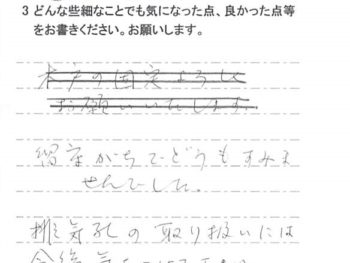 3 どんな些細なことでも気になった点、良かった点等
をお書きください。お願いします。
木戸の固定よろしく
お願いいたします。
留守がちでどうもすみま
せんでした。
排気孔の取り扱いには
今後気をつけて